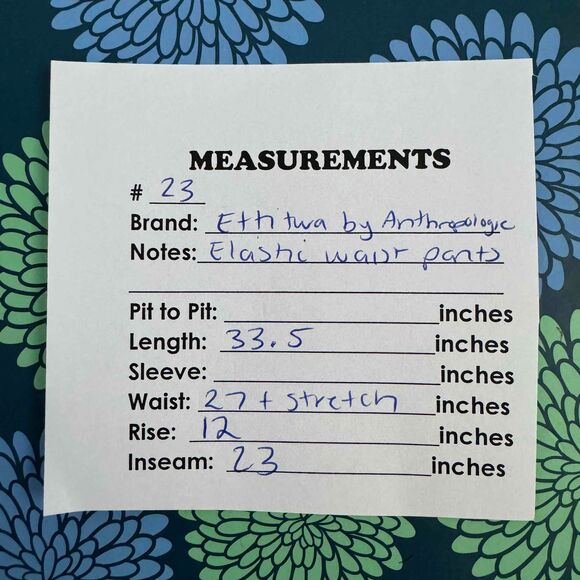 MEASUREMENTS
# 23
Brand: Eth twa by Anthropologie
Notes: Elastic waist pants
Pit to Pit: inches
Length: 33.5 inches
Sleeve: inches
Waist: 27 + stretch inches
Rise: 12 inches
Inseam: 23 inches